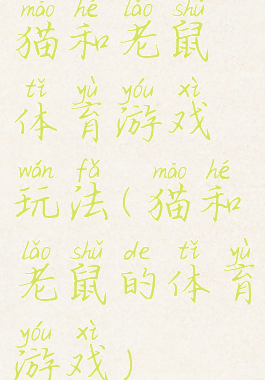 māo hé lǎo shǔ
猫和老鼠
tǐ yù yóu xì
体育游戏
wán fǎ māo hé
玩法(猫和
lǎo shǔ de tǐ yù
老鼠的体育
yóu xì
游戏)